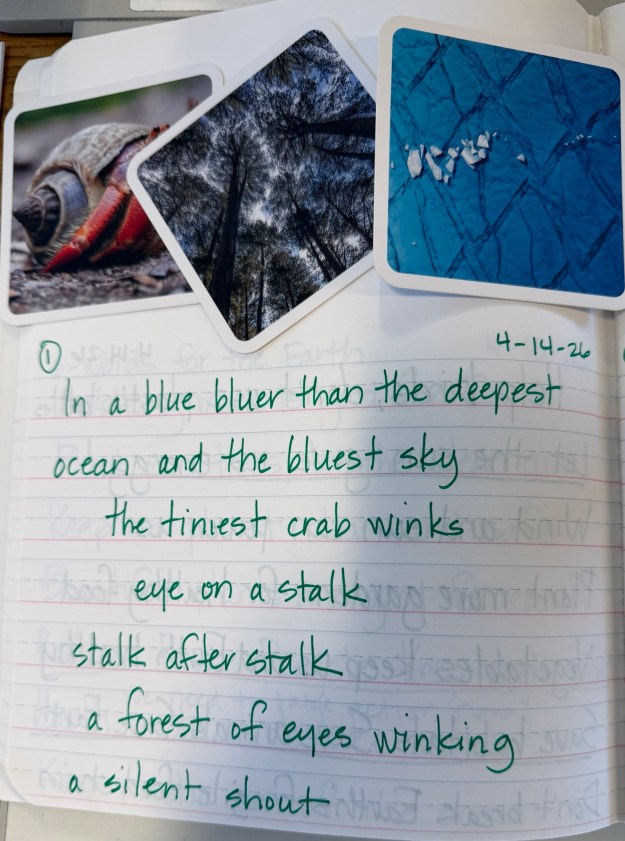 ① 4-14-26
In a blue bluer than the deepest
ocean and the bluest sky
the tiniest crab winks
eye on a stalk
stalk after stalk
a forest of eyes winking
a silent shout